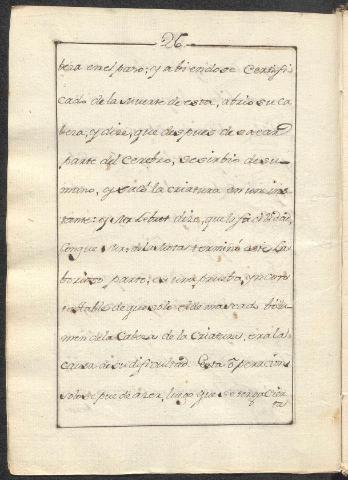 26.
beza en el paro; y abiendose Certifi
cado de la Muerte de esta, abrio su ca
beza, y dize, que despues de sacar
parte del Cerebro, se sirbio de su
mano, y sacó la criatura en un ins
tante: y Mr. dize, que la facilidad,
Conque Mr. de la Mota terminó este la
borioso parto, es una prueba, yncontes
table de que solo el demasiado bolu
men de la Cabeza de la Criatura, era la
causa de su dificultad. Esta operacion
solo se puede azer, luego que se tenga Cier
ta